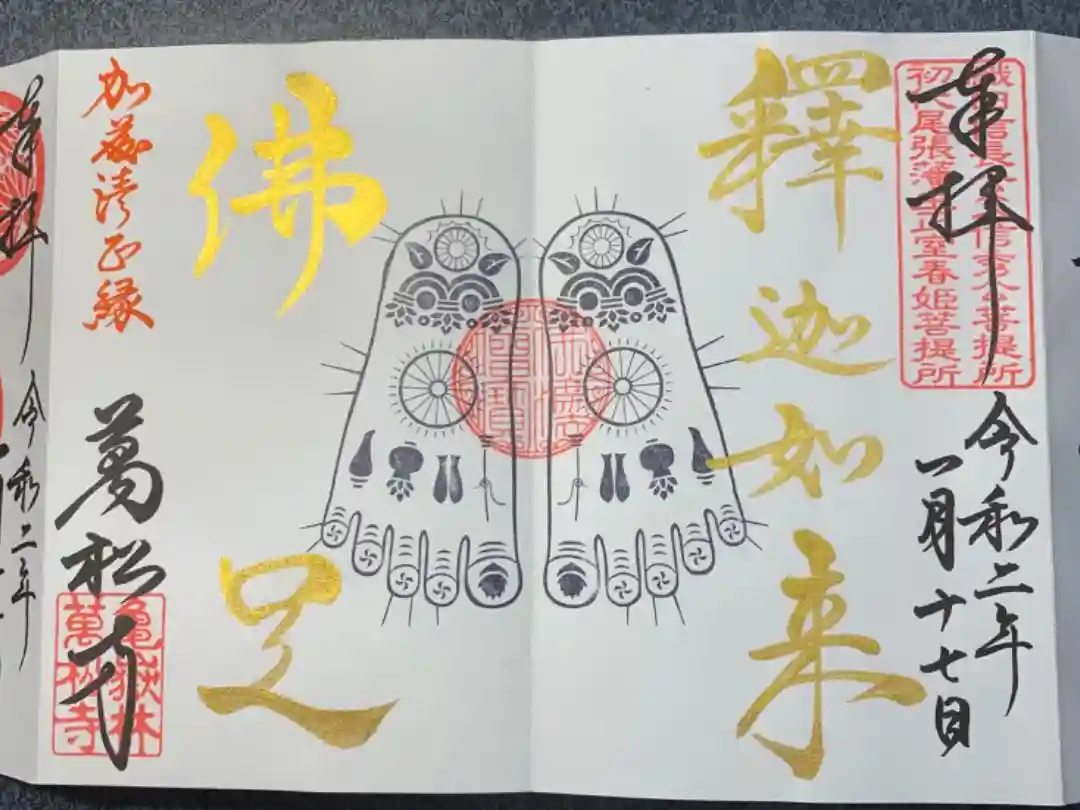 奉拝
織田信長
信秀公菩提所
初代尾張藩主正室春姫菩提所
令和二年
一月十七日
釋迦如来
佛足
加藤清正縁
萬松寺
亀嶽林
萬松寺
奉拝
令和二年